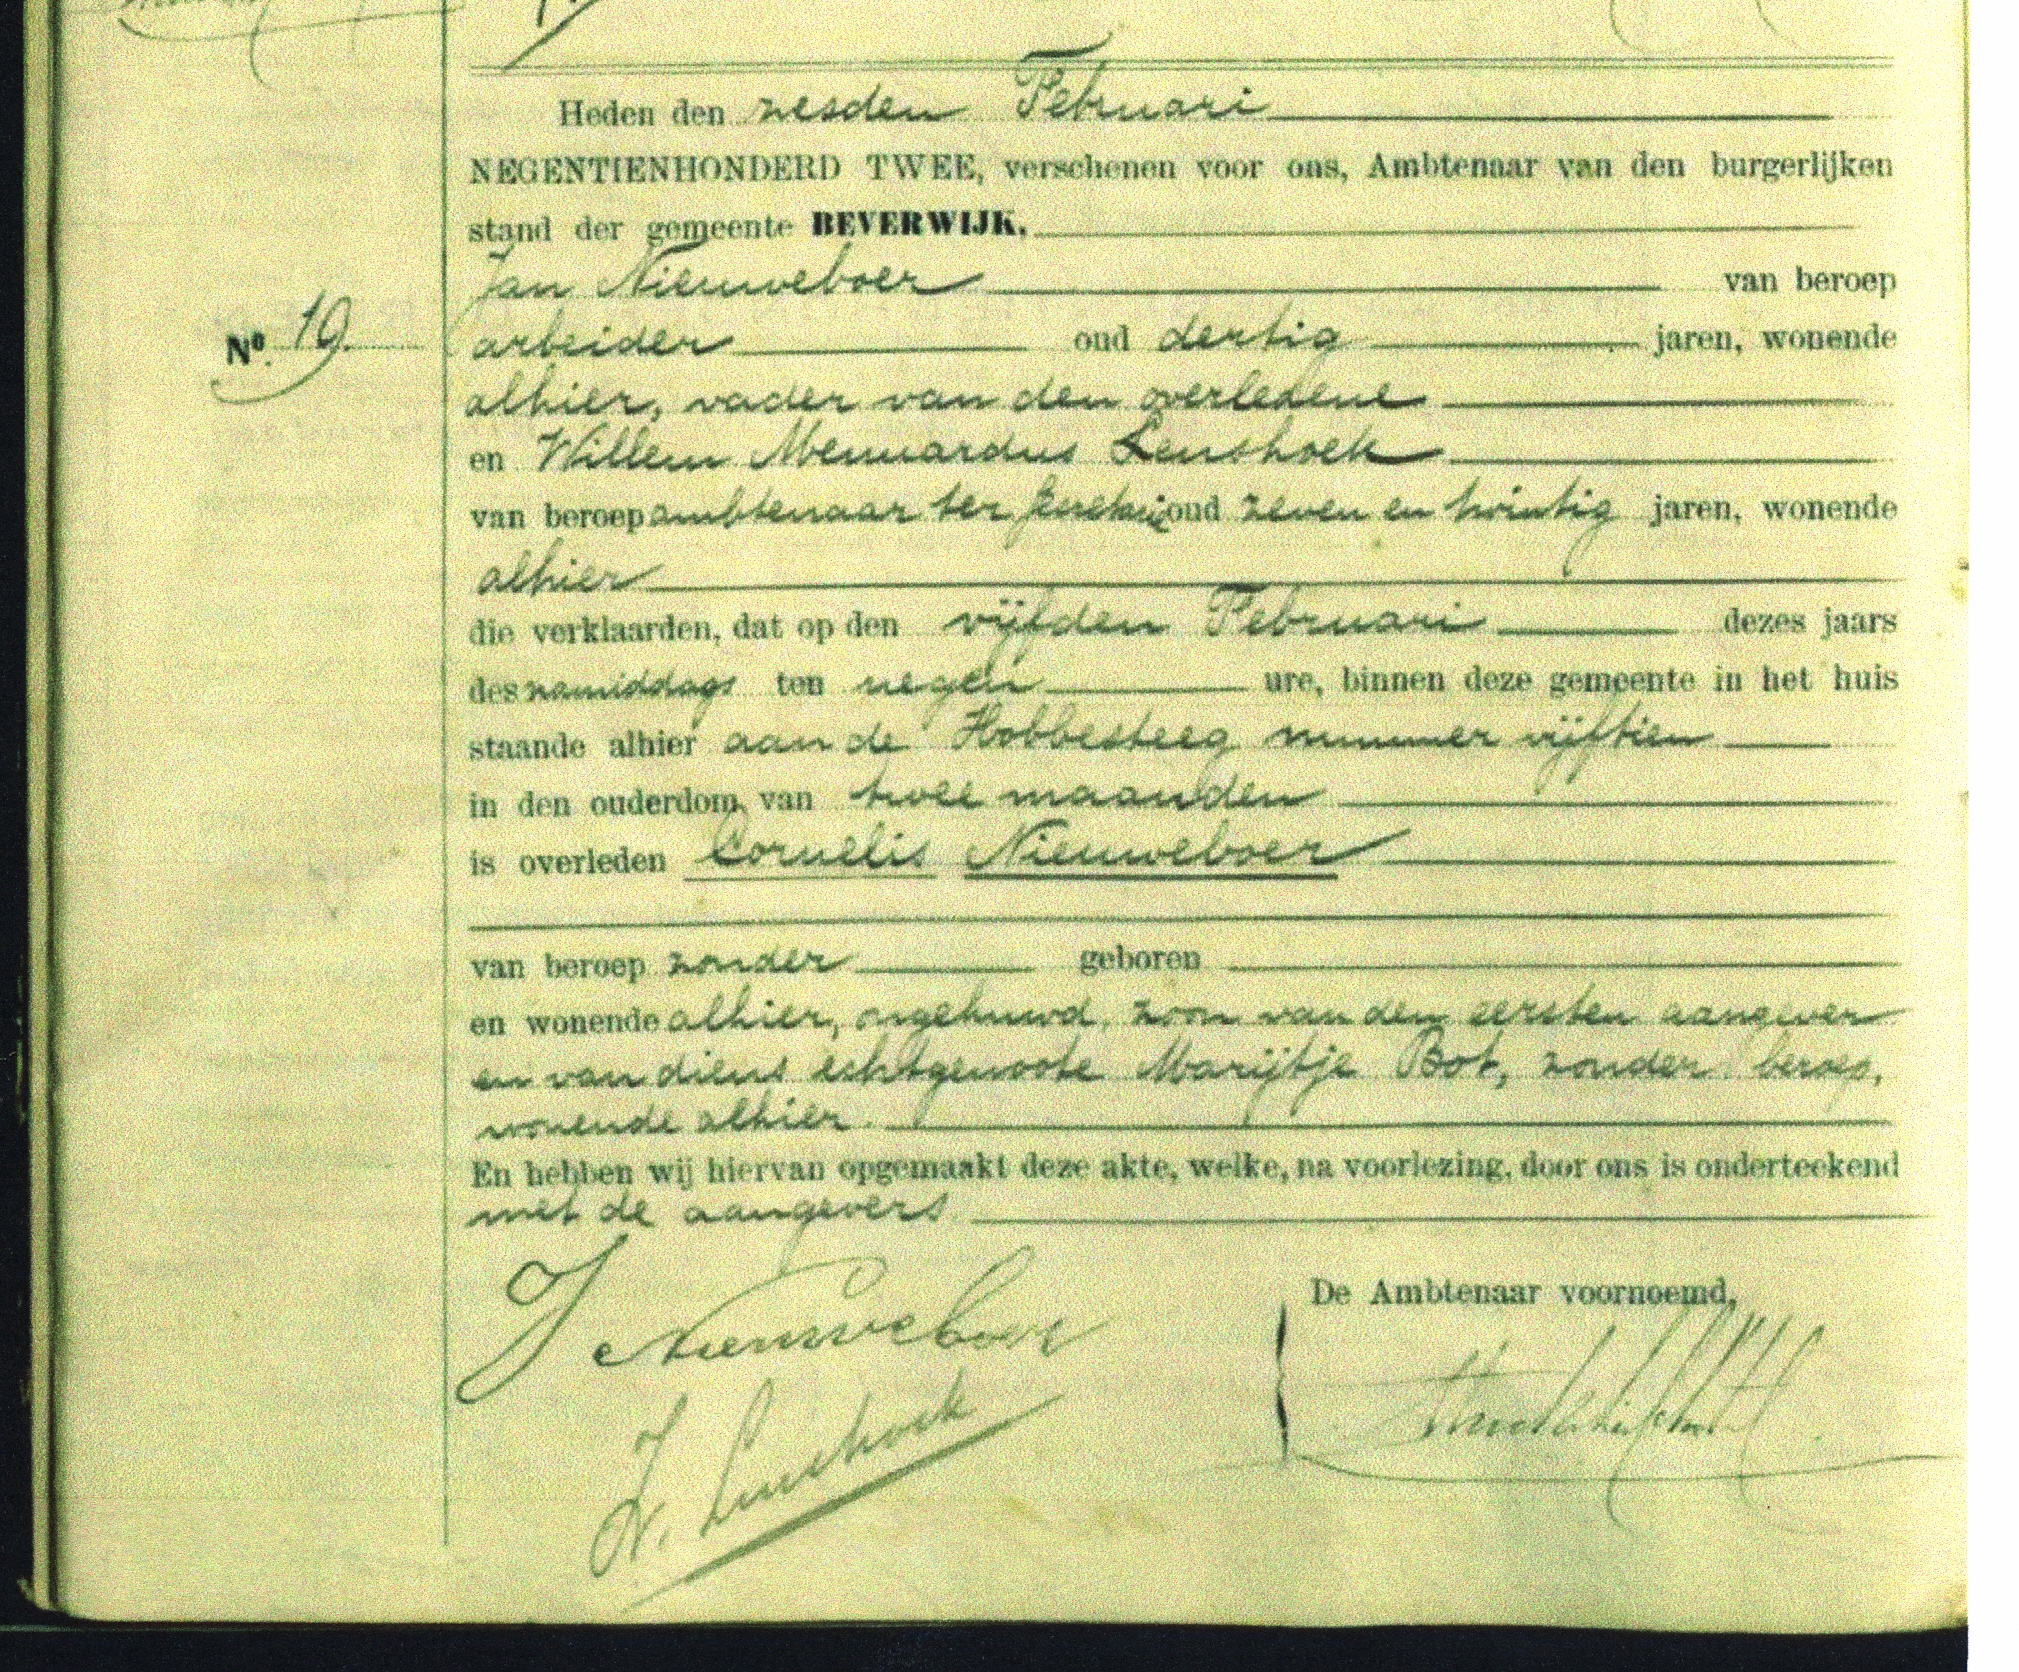 Heden den zesden Februari
NEGENTIENHONDERD TWEE, verschenen voor ons, Ambtenaar van den burgerlijken
stand der gemeente BEVERWIJK,
Jan Nieuweboer van beroep
No. 19.
arbeider oud dertig jaren, wonende
alhier, vader van den overledene
en Willem Mennardus Lenshoek
van beroep ambtenaar ter secretarie oud zeven en twintig jaren, wonende
alhier
die verklaarden, dat op den vijfden Februari dezes jaars
des namiddags ten negen ure, binnen deze gemeente in het huis
staande alhier aan de Hobbesteeg nummer vijftien
in den ouderdom van twee maanden
is overleden Cornelis Nieuweboer
van beroep zonder geboren
en wonende alhier, ongehuwd, zoon van den eersten aangever
en van diens echtgenoote Marijtje Bot, zonder beroep,
wonende alhier.
En hebben wij hiervan opgemaakt deze akte, welke, na voorlezing, door ons is onderteekend
met de aangevers.
De Ambtenaar voornoemd,
J Nieuweboer
W. Lenshoek